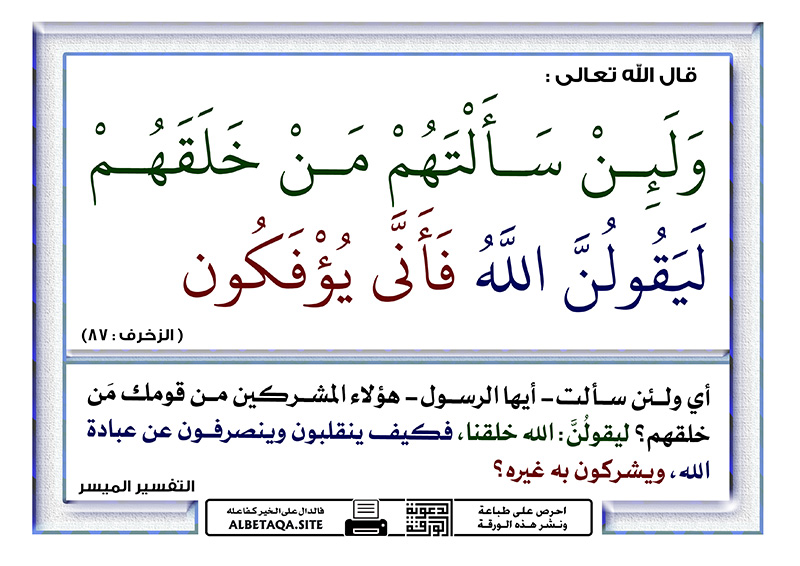 قال الله تعالى :
وَلَئِنْ سَأَلْتَهُمْ مَنْ خَلَقَهُمْ
لَيَقُولُنَّ اللَّهُ فَأَنَّى يُؤْفَكُون
( الزخرف : ٨٧ )
أي ولئن سألت - أيها الرسول - هؤلاء المشركين من قومك مَن
خلقهم؟ ليقولُنَّ : الله خلقنا، فكيف ينقلبون وينصرفون عن عبادة
الله، ويشركون به غيره؟
التفسير الميسر
احرص على طباعة
ونشر هذه الورقة
الدعوية
الورقة
فالدال على الخير كفاعله
ALBETAQA.SITE